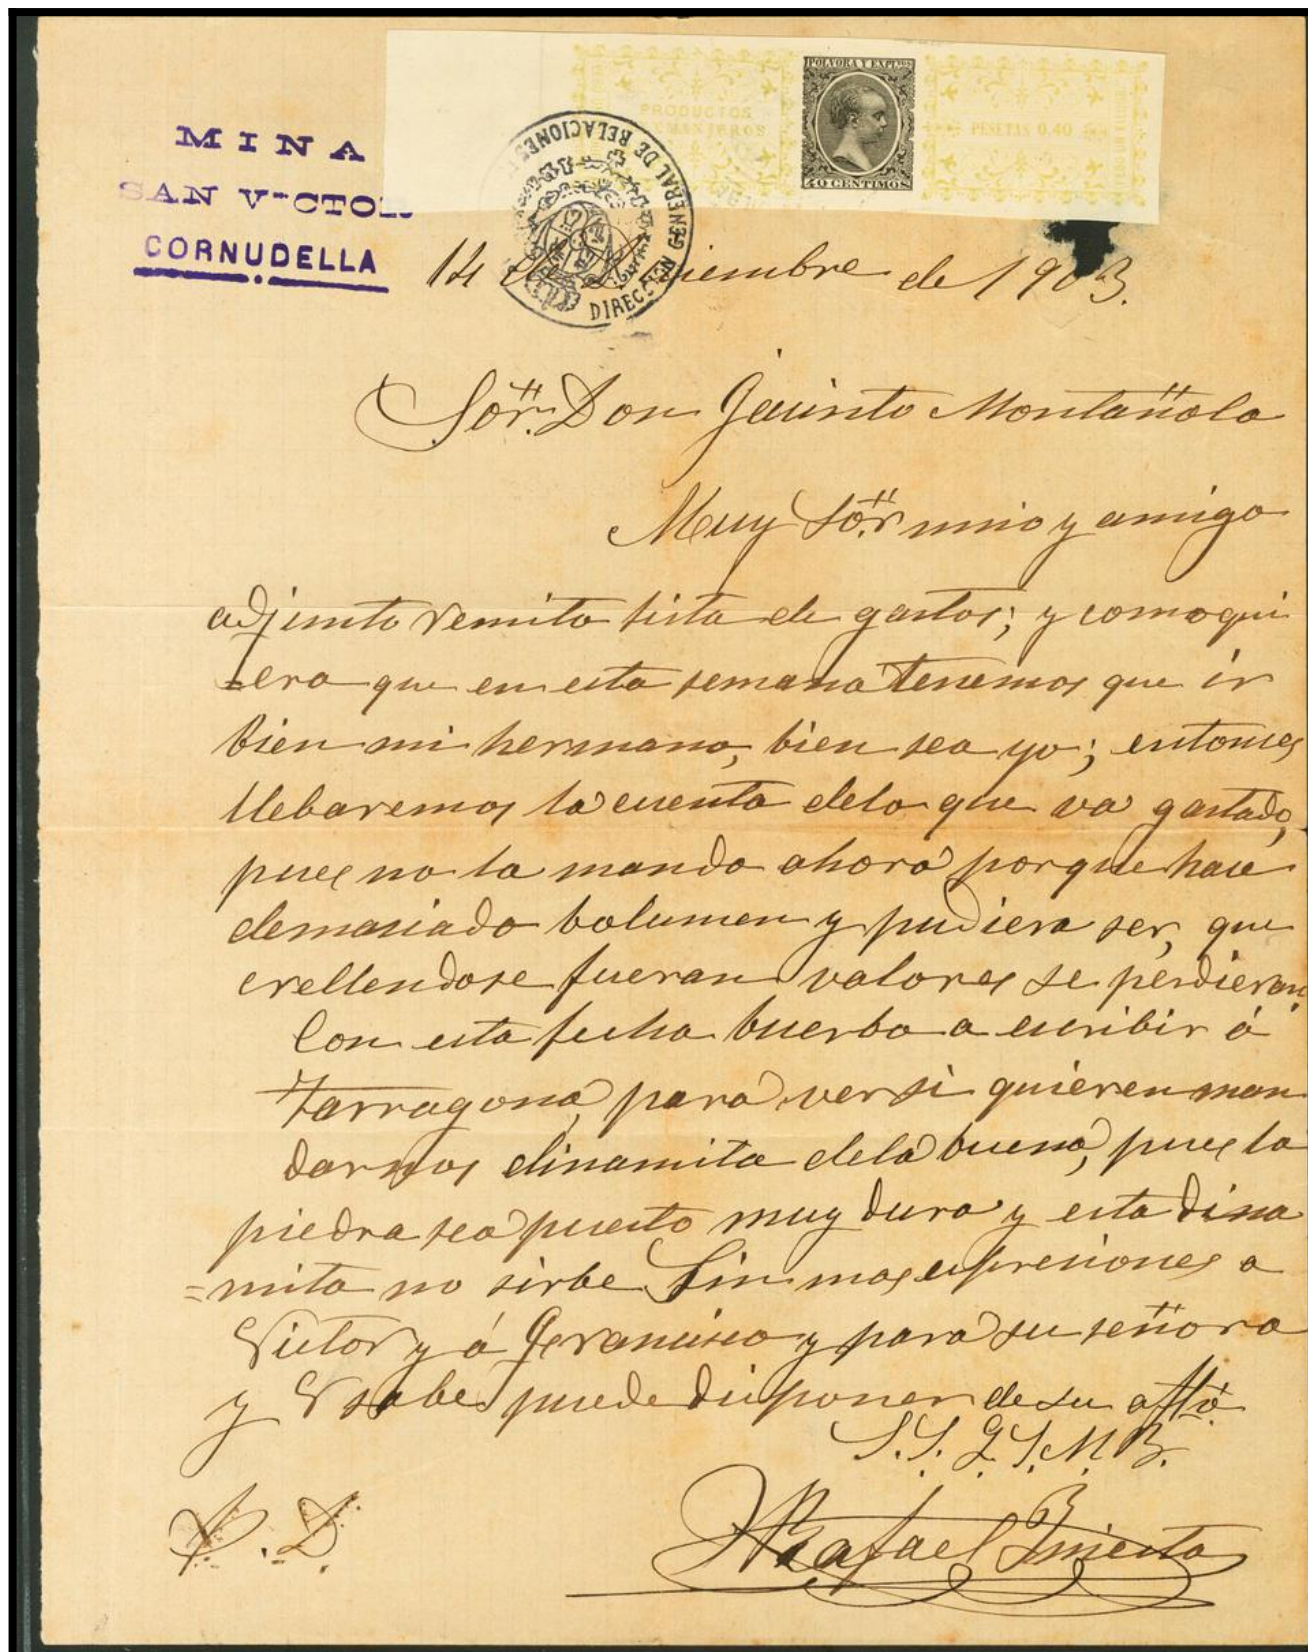 MINA
SAN VICTOR
CORNUDELLA
POLVORA Y EXPLVOS
40 CENTIMOS
PRODUCTOS
PESETAS 0,40
DIRECCIÓN GENERAL DE RELACIONES
14 de Diciembre de 1903.
Sör. Don Jacinto Montañola
Muy Sör mio y amigo
adjunto remito lista de gastos; y como qui
sera que en esta semana tenemos que ir
bien mi hermano, bien sea yo; entonces
llebaremos la cuenta delo que va gastado,
pues no la mando ahora porque hace
demasiado bolumen y pudiera ser, que
crellendose fueran valores se perdieran.
Con esta fecha buerbo a escribir á
Tarragona, para ver si quieren man
darnos dinamita dela buena, pues la
piedra sea puesto muy dura y esta dina
=mita no sirbe Sin mas espresiones a
Victor y á Francisco y para su señora
y V sabe puede disponer de su affº
S.S. Q.S.M.B.
Rafael
P.D.